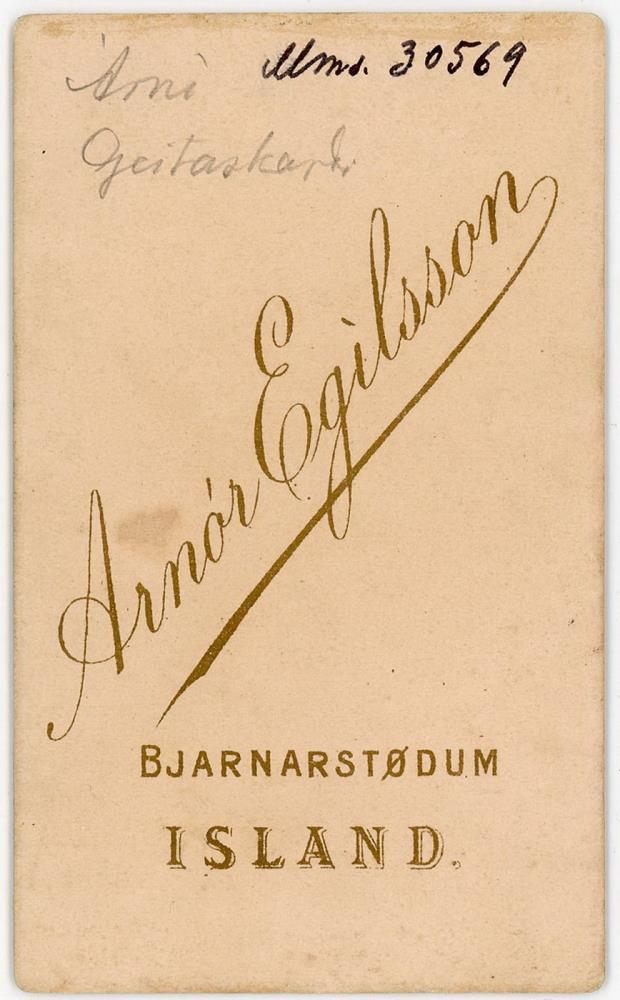 Mms. 30569
Árni
Geitaskarði
Arnór Egilsson
BJARNARSTØDUM
ISLAND.